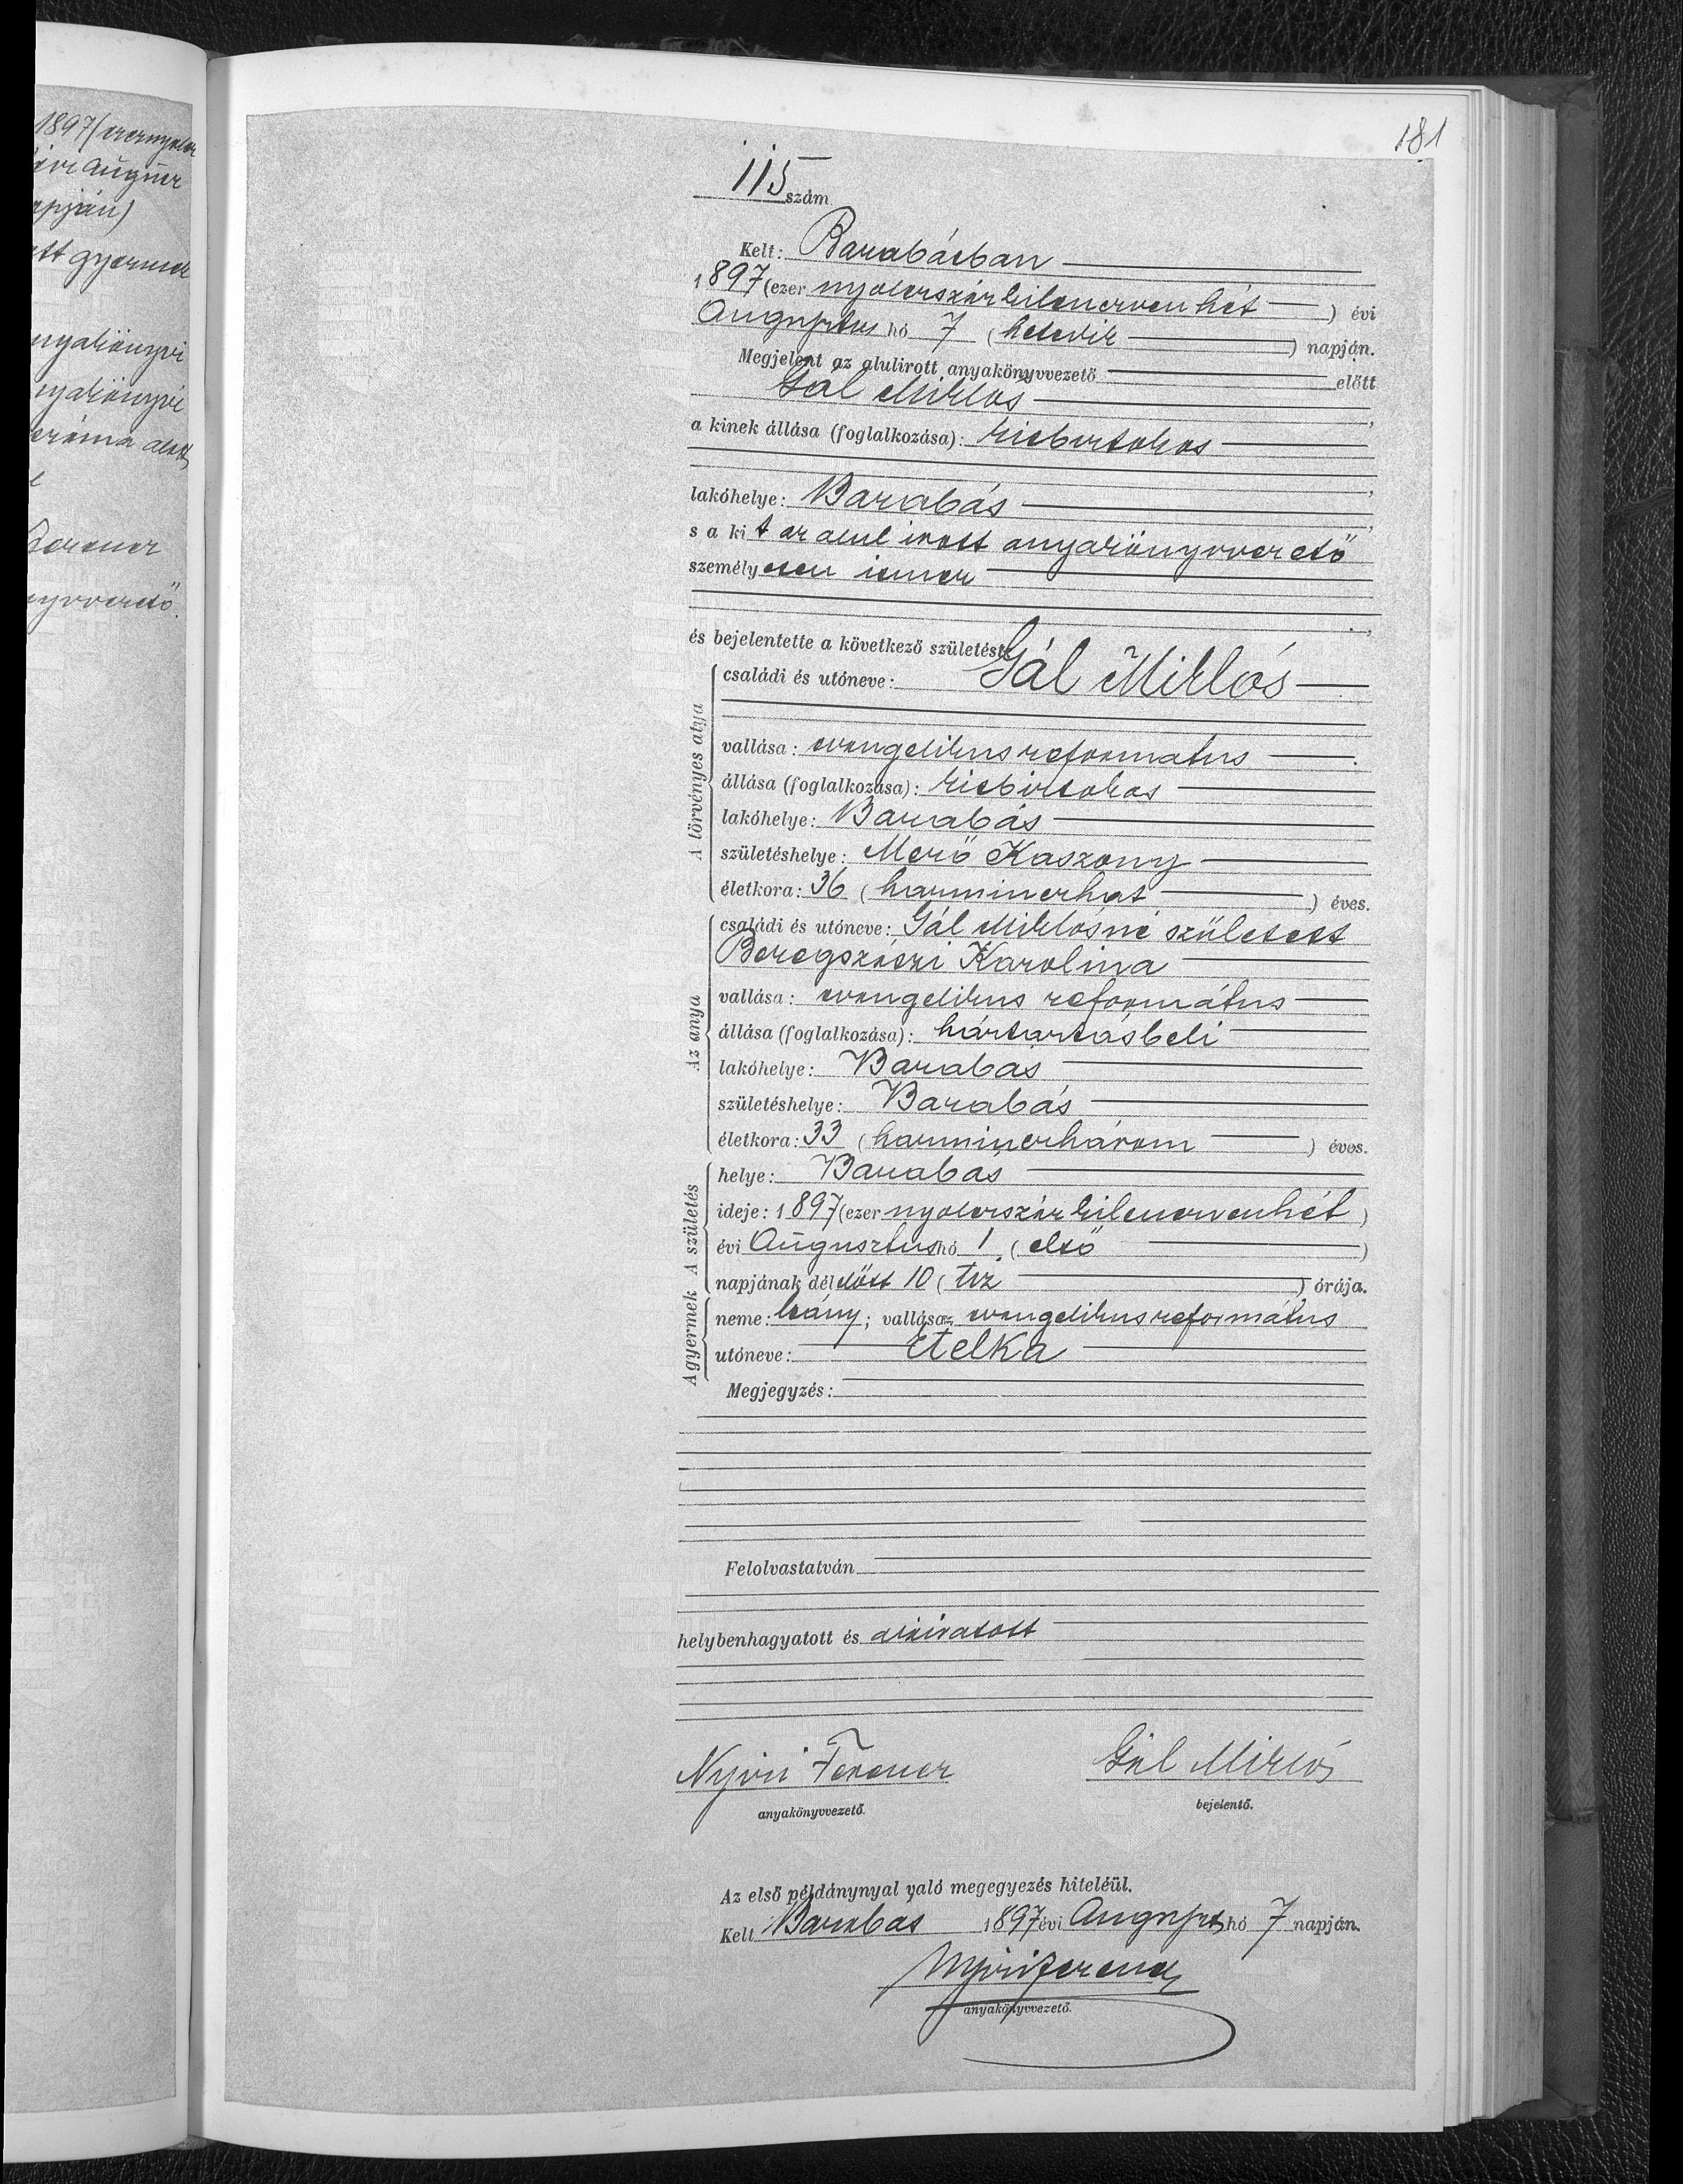 1897/ezernyolcz
évi Augusz
apján)
ett gyermek
nyakönyvi
nyakönyvi
száma alatt
Ferencz
nyvvezető.
181
115 szám.
Kelt: Barabásban
1897 (ezer nyolczszázkilenczvenhét) évi
Augusztus hó 7 (hetedik) napján.
Megjelent az alulirott anyakönyvvezető előtt
Gál Miklós,
a kinek állása (foglalkozása): kisbirtokos
lakóhelye: Barabás,
s a kit az alul irott anyakönyvvezető
személyesen ismer
és bejelentette a következő születést:
A törvényes atya
családi és utóneve: Gál Miklós
vallása: evangelikus reformatus
állása (foglalkozása): kisbirtokos
lakóhelye: Barabás
születéshelye: Mező Kaszony
életkora: 36 (harminczhat) éves.
Az anya
családi és utóneve: Gál Miklósné született
Beregszászi Karolina
vallása: evangelikus református
állása (foglalkozása): háztartásbeli
lakóhelye: Barabás
születéshelye: Barabás
életkora: 33 (harminczhárom) éves.
A születés
helye: Barabás
ideje: 1897 (ezer nyolczszázkilenczvenhét)
évi Augusztus hó 1 (első)
napjának délelőtt 10 (tiz) órája.
A gyermek
neme: leány; vallása: evangelikus református
utóneve: Etelka
Megjegyzés:
Felolvastatván
helybenhagyatott és aláiratott
Nyiri Ferencz Gál Miklós
anyakönyvvezető. bejelentő.
Az első példánynyal való megegyezés hiteléül.
Kelt Barabás 1897 évi Auguszt hó 7 napján.
Nyiri Ferencz
anyakönyvvezető.